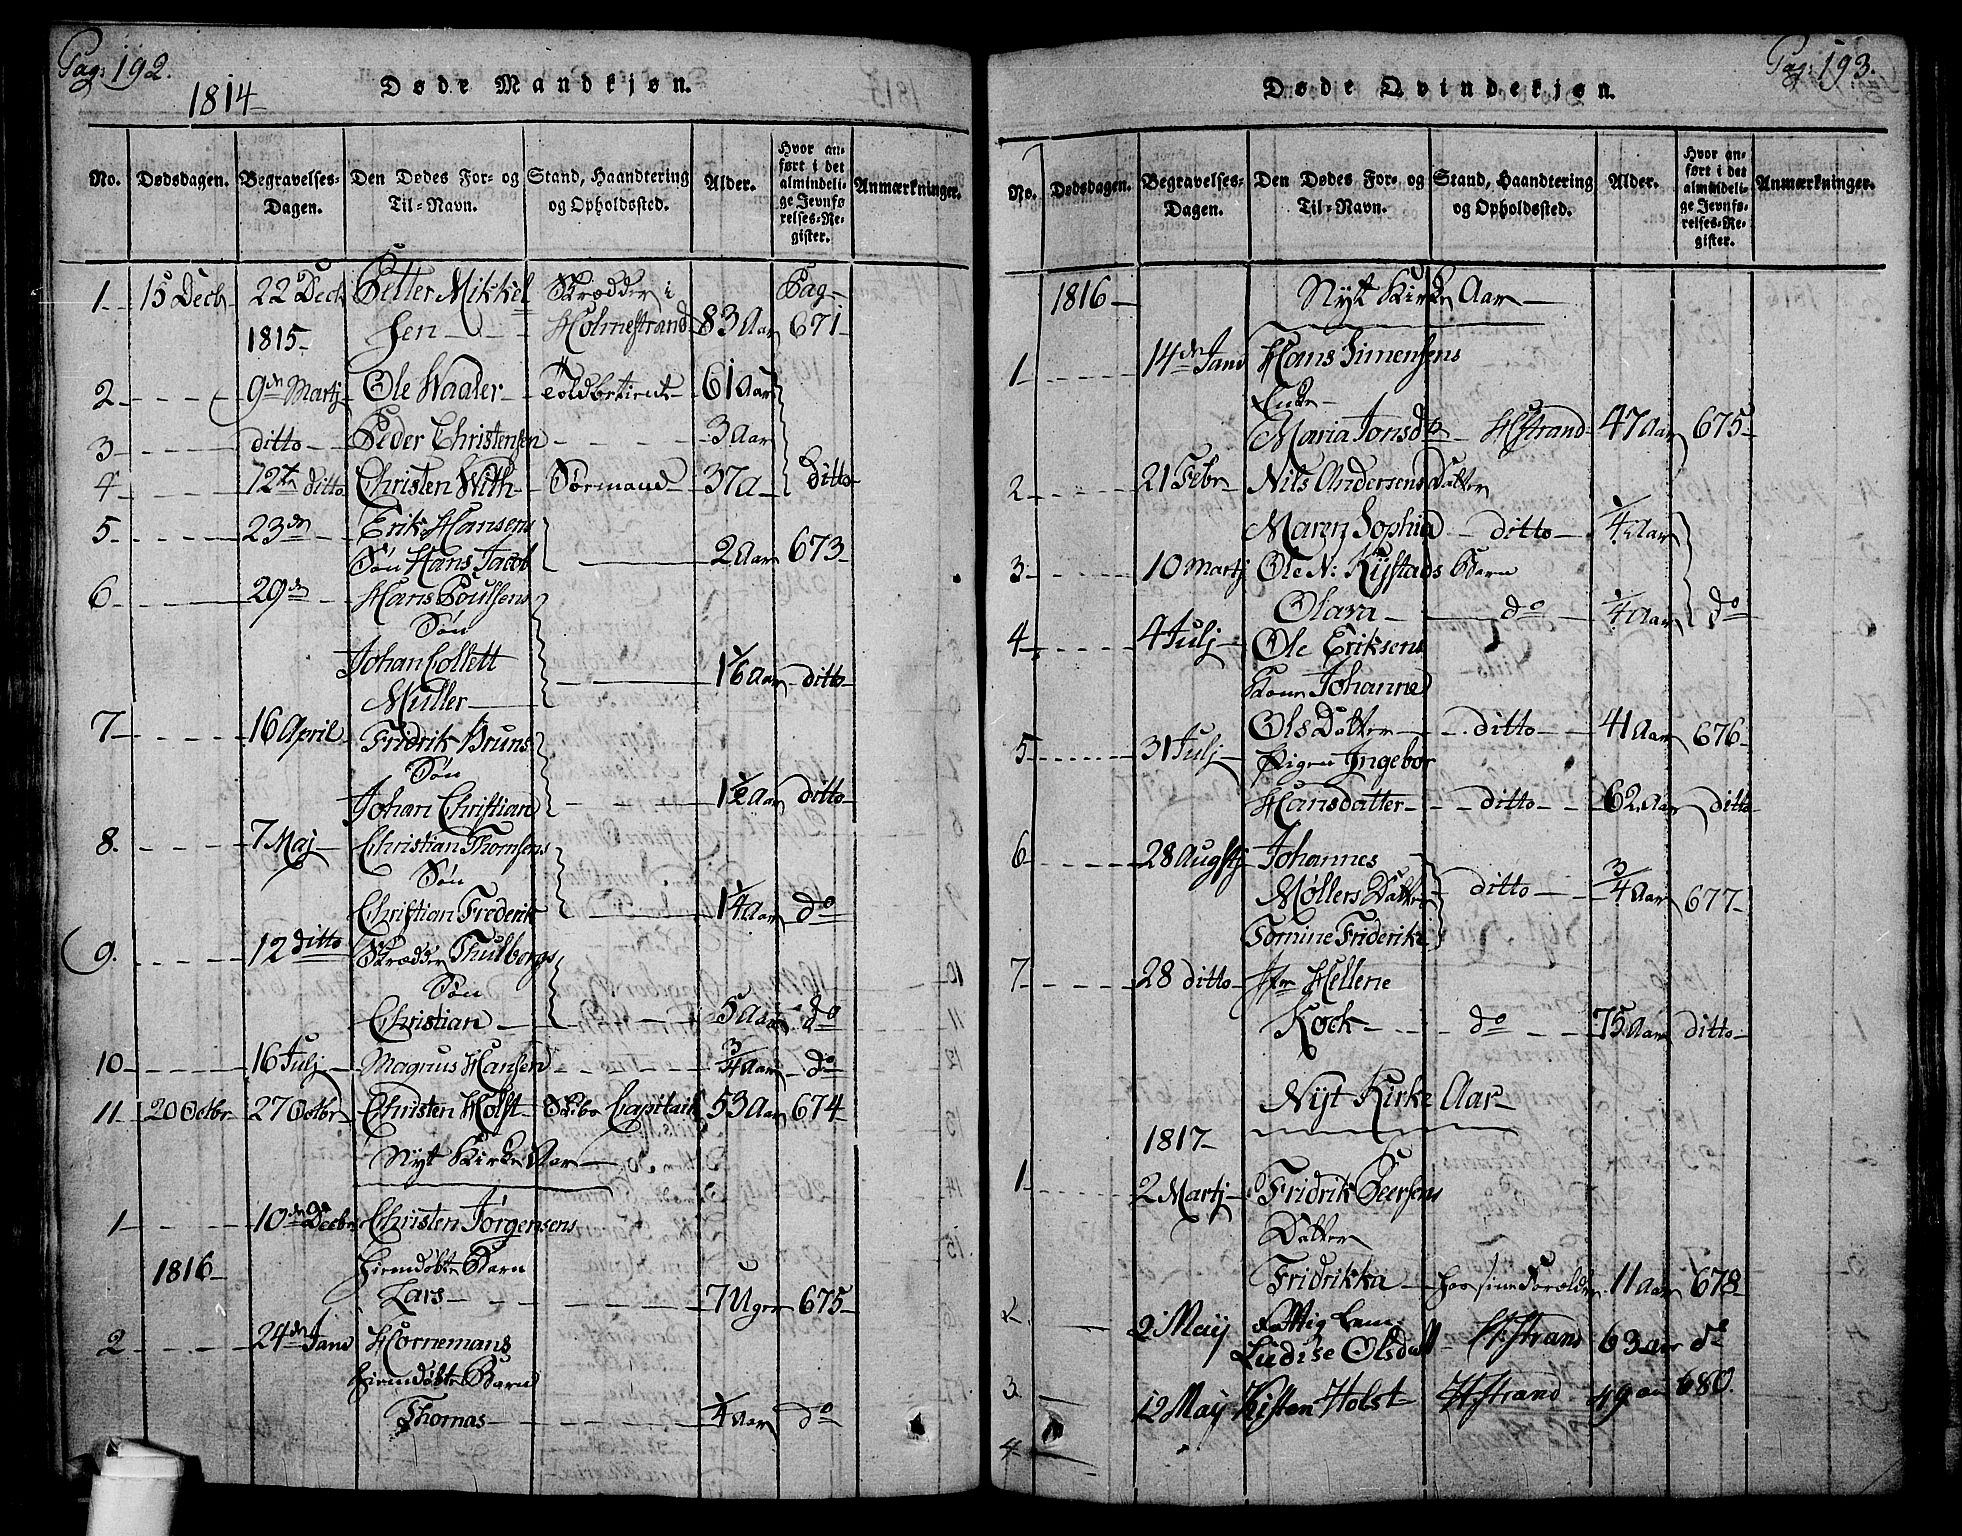 Pag: 192.
1814
Døde Mandkjøn.
No. Dødsdagen. Begravelses-Dagen. Den Dødes For- og Til-Navn. Stand, Haandtering og Opholdssted. Alder. Hvor anført i det almindelige Jevnførelses-Register. Anmærkninger.
1 15 Decb 22 Decb Petter Mikkel Skrædder i Pag
1815 sen Holmestrand 83 Aar 671
2 9de Martj Ole Waaler Toldbetient 61 Aar
3 ditto Peder Christensen 3 Aar
4 12te ditto Christen With Sørmand 37 a ditto
5 23de Erik Hansens
Søn Hans Jacob 2 Aar 673
6 29de Hans Poulsens
Søn
Johan Collett 1 1/6 Aar ditto
Muller
7 16 April Fridrik Bruns
Søn
Johan Christian 1 1/2 Aar ditto
8. 7 Maj Christian Thomsens
Søn
Christian Frederik 1 1/4 Aar do
9. 12 ditto Skrædder Thulbergs
Søn
Christian 5 Aar do
10 16 Julj Magnus Hansen 3/4 Aar do
11 20 Octbr 27 Octbr Christen Holst Skibs Capitain 53 Aar 674
Nyt Kirke Aar
1 10de Decbr Christen Jørgensens
1816 hiemdøbte Barn
Lars 7 Uger 675
2 24de Janu Hornemans
hiemdøbte Barn
Thomas 1/4 Aar do
Pag: 193.
Døde Qvindekjøn.
No. Dødsdagen. Begravelses-Dagen. Den Dødes For- og Til-Navn. Stand, Haandtering og Opholdssted. Alder. Hvor anført i det almindelige Jevnførelses-Register. Anmærkninger.
1816 Nyt Kirke Aar
1 14de Janu Hans Simensens
Enke
Maria Jonsdr Hstrand 47 Aar 675
2 21 Febr Nils Andersens Datter
Maren Sophia ditto 1/4 Aar
3 10 Martj Ole N: Kystads Barn
Olara do 1/4 Aar do
4 4 Julj Ole Eriksens
Kone Johanne
Ols Datter ditto 41 Aar 676
5 31 Julj Pigen Ingebor
Hansdatter ditto 62 Aar ditto
6 28 Augstj Johannes
Møllers Datter ditto 3/4 Aar 677
Tomine Friderike
7 28 ditto Jfr Hellene
Kock do 75 Aar ditto
Nyt Kirke Aar
1817
1 2 Martj Fridrik Peersens
Datter
Fridrikka hos sine Forældre 11 Aar 678
2. 2 Maij Fattig Lem
Ludise Olsd Hstrand 63 aar do
3. 12 Maij Kisten Holst Hstrand 49 aar 680.
4